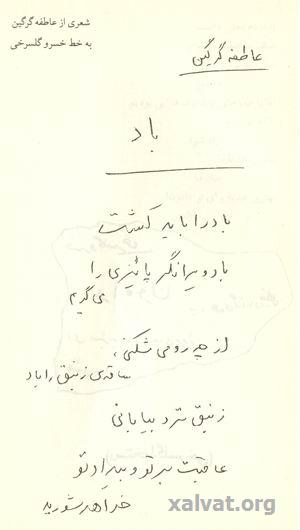 شعری از عاطفه گرگین
به خط خسرو گلسرخی
عاطفه گرگین
باد
باد را باید کشت
باد ویرانگر پائیزی را
می گویم
از چه رو می شکنی،
ساقه ی زنبق را باد
زنبق ترد بیابانی
عاقبت بر تو و بیداد تو
خواهد شورید
xalvat.org